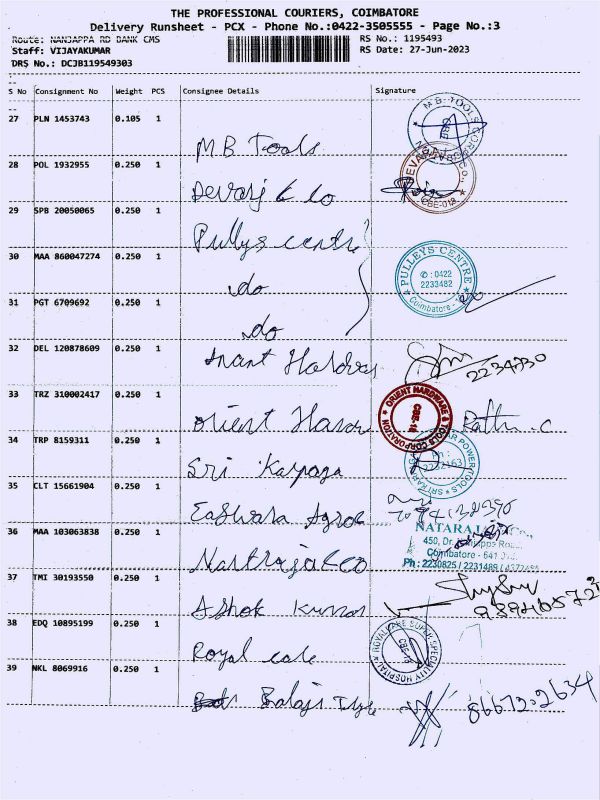 THE PROFESSIONAL COURIERS, COIMBATORE
Delivery Runsheet - PCX - Phone No.:0422-3505555 - Page No.:3
Route: NANJAPPA RD BANK CMS RS No.: 1195493
Staff: VIJAYAKUMAR RS Date: 27-Jun-2023
DRS No.: DCJB119549303
S No Consignment No Weight PCS Consignee Details Signature
27 PLN 1453743 0.105 1
M.B Tools M.B. TOOLS CORPORATION CBE
28 POL 1932955 0.250 1
Devaraj & Co CBE-018
29 SPB 20050065 0.250 1
Pullys centre
30 MAA 860047274 0.250 1
do PULLEYS CENTRE ✆ : 0422 2233482 Coimbatore -
31 PGT 6709692 0.250 1
do
32 DEL 120878609 0.250 1
Anant Hardwas 2234730
33 TRZ 310002417 0.250 1
Orient Hard ORIENT HARDWARE & TOOLS CORPORATION CBE-18
34 TRP 8159311 0.250 1
Sri Karpaga POWER TOOLS Ph : 2232163
35 CLT 15661904 0.250 1
Easwara Agro
36 MAA 103063838 0.250 1
Natraja & Co NATARAJ
450, Dr.
Coimbatore - 641
Ph : 2230825 / 2231489 /
37 TMI 30193550 0.250 1
Ashok Kumar
38 EDQ 10895199 0.250 1
Royal care ROYAL CARE SUPER SPECIALITY HOSPITAL
39 NKL 8069916 0.250 1
Balaji Tyre 8667202634